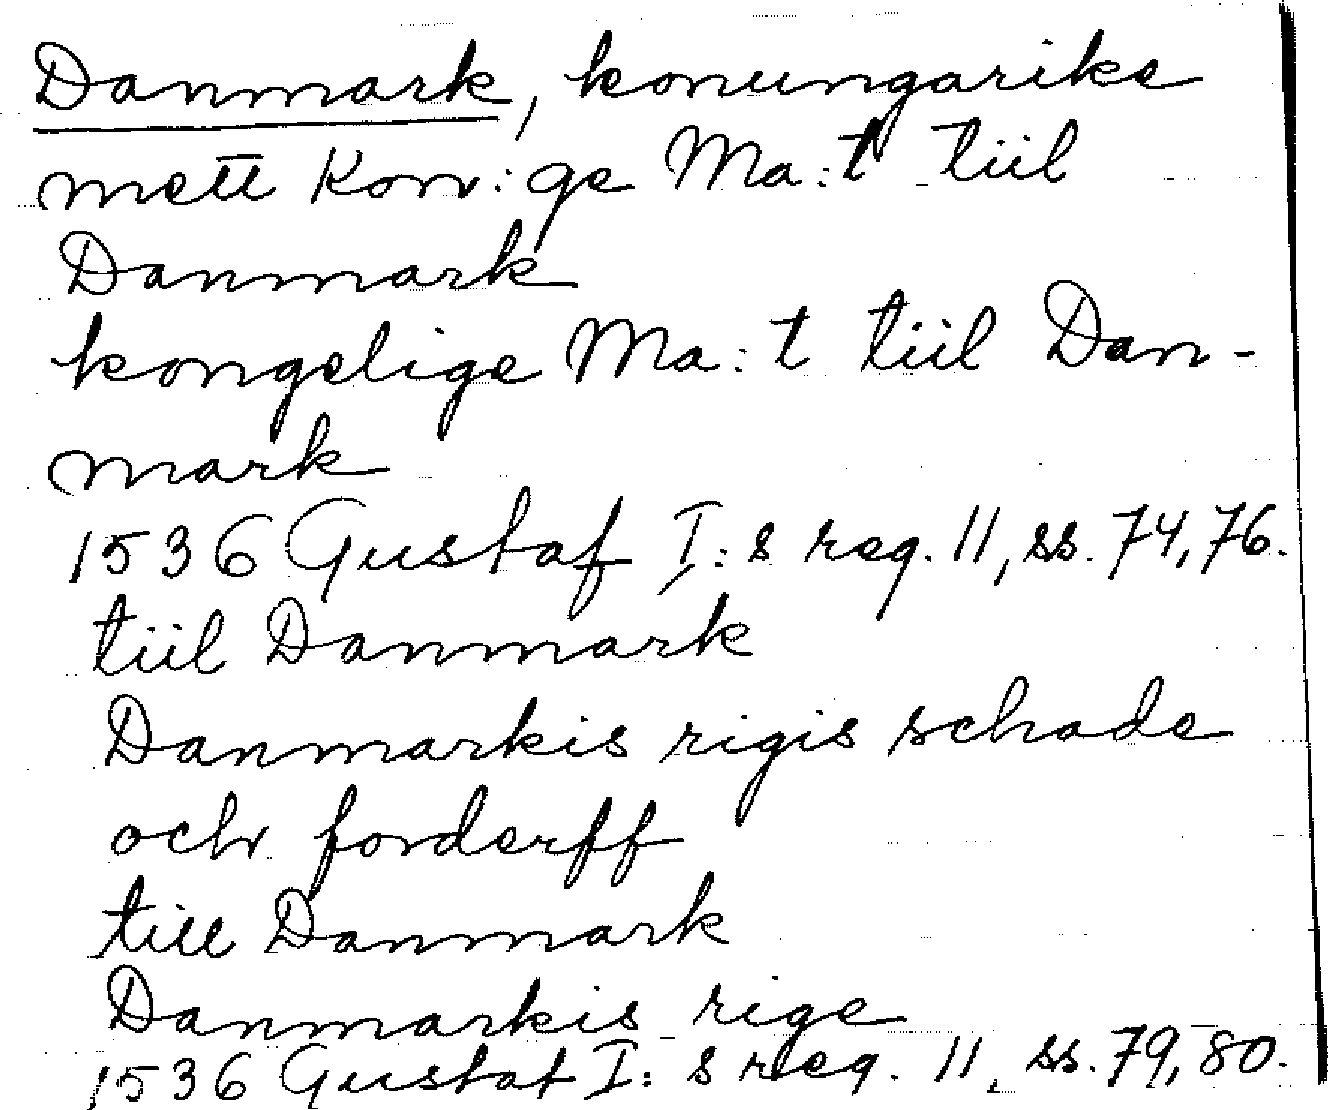 Danmark, konungarike
mett Kon:ge Ma:t tiil
Danmark
kongelige Ma:t tiil Dan-
mark
1536 Gustaf I:s reg. 11, ss. 74, 76.
tiil Danmark
Danmarkis rigis schade
och forderff
till Danmark
Danmarkis rige
1536 Gustaf I:s reg. 11, ss. 79, 80.